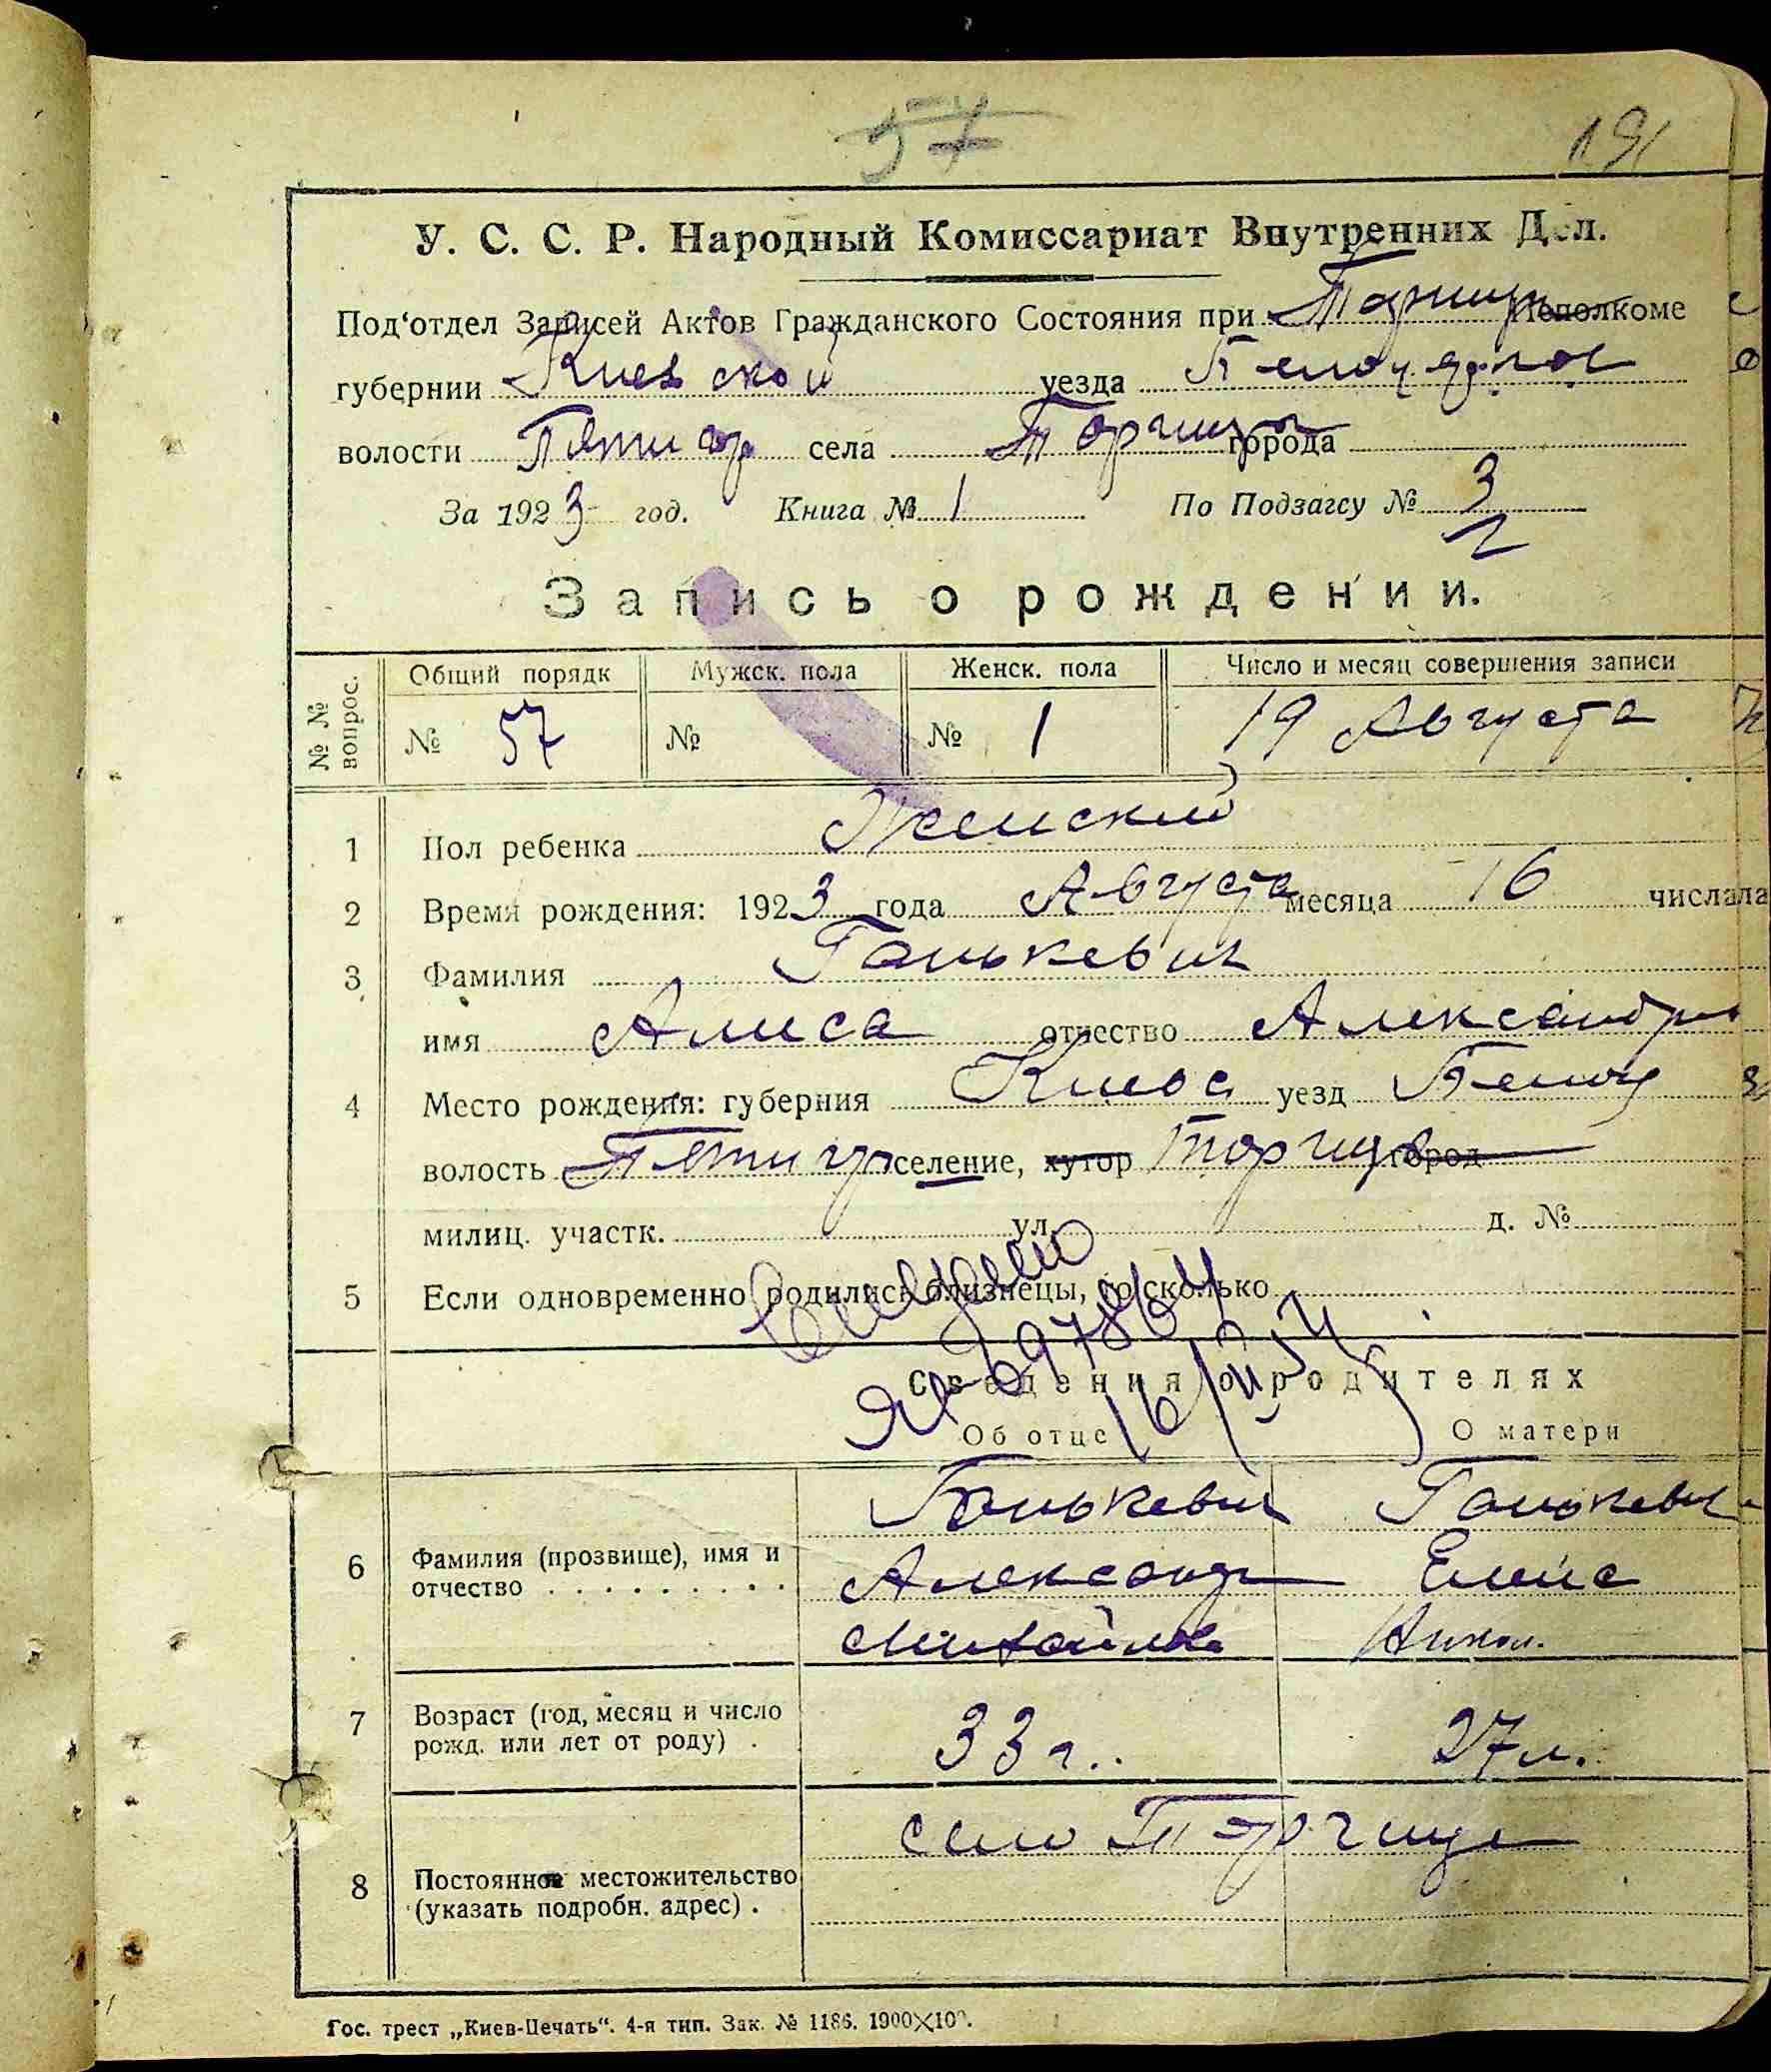 57
191
У. С. С. Р. Народный Комиссариат Внутренних Дел.
Под‘отдел Записей Актов Гражданского Состояния при Исполкоме
губернии Киевской уезда
волости Пятигор села Торчица города
За 1923 год. Книга № 1 По Подзагсу № 3
2
Запись о рождении.
№ № вопрос. Общий порядк Мужск. пола Женск. пола Число и месяц совершения записи
№ 57 № № 1 19 Августа
1 Пол ребенка Женский
2 Время рождения: 1923 года Августа месяца 16 числа
3 Фамилия Ганькевич
имя Алиса отчество Александр
4 Место рождения: губерния Киевс уезд Белоц
волость Пятигор селение, хутор Торчица город
милиц. участк. ул. д. №
5 Если одновременно родились близнецы, то сколько
Сведения о родителях
Об отце О матери
Ганькевич Ганькевич
6 Фамилия (прозвище), имя и Александр Елена
отчество
Михайлов Никол.
7 Возраст (год, месяц и число 33 г. 27 л.
рожд. или лет от роду) .
село Торчица
8 Постоянное местожительство
(указать подробн. адрес) .
Гос. трест „Киев-Печать“. 4-я тип. Зак. № 1186. 1900×100.